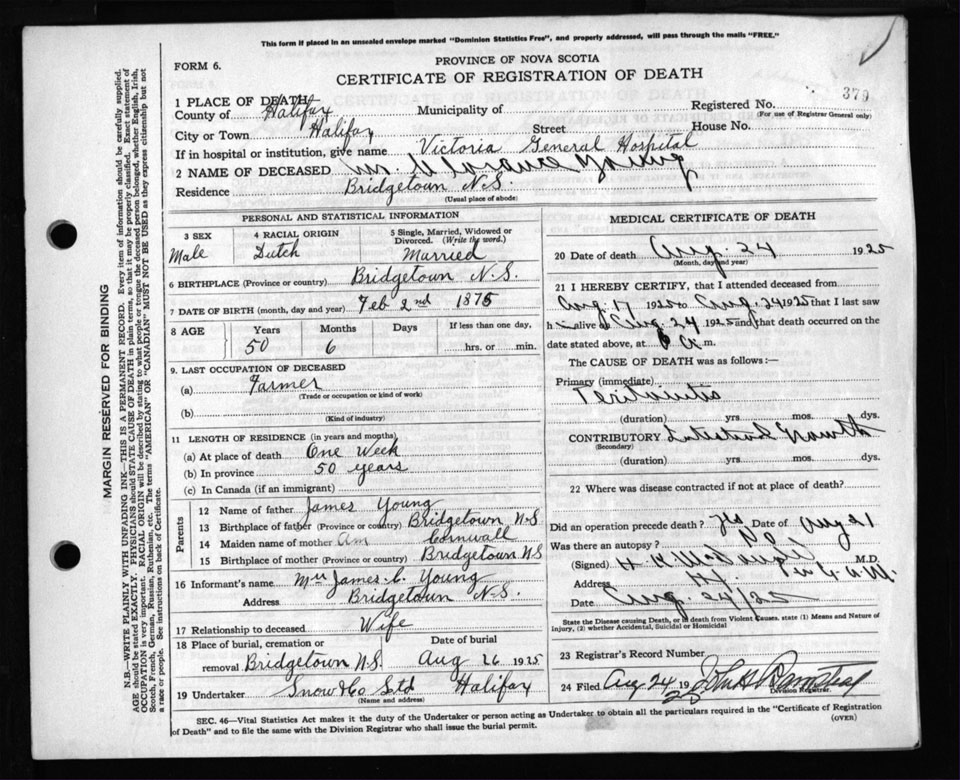 This form if placed in an unsealed envelope marked "Dominion Statistics Free", and properly addressed, will pass through the mails "FREE."
FORM 6.
PROVINCE OF NOVA SCOTIA
CERTIFICATE OF REGISTRATION OF DEATH
1 PLACE OF DEATH
Registered No. 379
(For use of Registrar General only)
County of Halifax Municipality of
City or Town Halifax Street House No.
If in hospital or institution, give name Victoria General Hospital
2 NAME OF DECEASED Mr. Young
Residence Bridgetown N.S.
(Usual place of abode)
PERSONAL AND STATISTICAL INFORMATION
3 SEX 4 RACIAL ORIGIN 5 Single, Married, Widowed or
Divorced. (Write the word.)
Male Dutch Married
6 BIRTHPLACE (Province or country) Bridgetown N.S.
7 DATE OF BIRTH (month, day and year) Feb 2nd 1875
8 AGE Years Months Days If less than one day,
50 6 hrs. or min.
9. LAST OCCUPATION OF DECEASED
(a) Farmer
(Trade or occupation or kind of work)
(b)
(Kind of industry)
11 LENGTH OF RESIDENCE (in years and months)
(a) At place of death One Week
(b) In province 50 years
(c) In Canada (if an immigrant)
Parents
12 Name of father James Young
13 Birthplace of father (Province or country) Bridgetown N.S
14 Maiden name of mother Cornwall
15 Birthplace of mother (Province or country) Bridgetown N.S
16 Informant's name Mrs James C. Young
Address Bridgetown N.S.
17 Relationship to deceased Wife
18 Place of burial, cremation or Date of burial
removal Bridgetown N.S. Aug 26 1925
19 Undertaker Snow & Co Ltd Halifax
(Name and address)
MEDICAL CERTIFICATE OF DEATH
20 Date of death Aug 24 1925
(Month, day and year)
21 I HEREBY CERTIFY, that I attended deceased from
Aug 17 1925 to Aug 24 1925 that I last saw
h im alive at Aug. 24 1925 and that death occurred on the
date stated above, at 6 a m.
The CAUSE OF DEATH was as follows:—
Primary (immediate)
Peritonitis
(duration) yrs. mos. dys.
CONTRIBUTORY Intestinal Growth
(Secondary)
(duration) yrs. mos. dys.
22 Where was disease contracted if not at place of death?
Did an operation precede death? Yes Date of Aug 21
Was there an autopsy? No
(Signed) M.D.
Address
Date Aug. 24/25
State the Disease causing Death, or in death from Violent Causes, state (1) Means and Nature of
Injury, (2) whether Accidental, Suicidal or Homicidal
23 Registrar's Record Number
24 Filed Aug 24 1925
Division Registrar.
SEC. 46—Vital Statistics Act makes it the duty of the Undertaker or person acting as Undertaker to obtain all the particulars required in the "Certificate of Registration
of Death" and to file the same with the Division Registrar who shall issue the burial permit.
(OVER)
MARGIN RESERVED FOR BINDING
N.B.—WRITE PLAINLY WITH UNFADING INK—THIS IS A PERMANENT RECORD. Every item of information should be carefully supplied.
AGE should be stated EXACTLY. PHYSICIANS should STATE CAUSE OF DEATH in plain terms, so that it may be properly classified. Exact statement of
OCCUPATION is very important. RACIAL ORIGIN will be described by stating to what people or tongue the deceased person belonged, whether English, Irish,
Scotch, French, German, Russian, Ruthenian, etc. The terms "AMERICAN" OR "CANADIAN" MUST NOT BE USED as they express citizenship but not
a race or people. See instructions on back of Certificate.